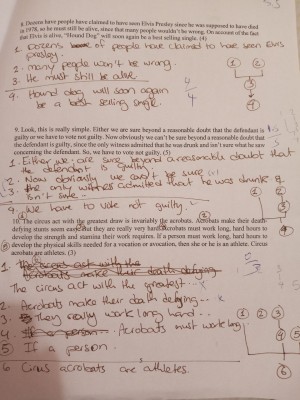 8. Dozens have people have claimed to have seen Elvis Presley since he was supposed to have died
in 1978, so he must still be alive, since that many people wouldn't be wrong. On account of the fact
that Elvis is alive, "Hound Dog" will soon again be a best selling single. (4)
1. Dozens of people have claimed to have seen Elvis
presley.
2. many people won't be wrong.
3. He must still be alive
4. Hound dog will soon again
be a best selling single.
1 2
3
4
4
4
9. Look, this is really simple. Either we are sure beyond a reasonable doubt that the defendant is
guilty or we have to vote not guilty. Now obviously we can't be sure beyond a reasonable doubt that
the defendant is guilty, since the only witness admitted that he was drunk and isn't sure what he saw
concerning the defendant. So, we have to vote not guilty. (3)
1. Either we are sure beyond a reasonable doubt that
the defendant is guilty
2. Now obviously we can't be sure
3. the only witness admitted that he was drunk &
Isn't sure
4. We have to vote not guilty.
10. The circus act with the greatest draw is invariably the acrobats. Acrobats make their death
defying stunts seem easy, but they are really very hard. Acrobats must work long, hard hours to
develop the strength and stamina their work requires. If a person must work long, hard hours to
develop the physical skills needed for a vocation or avocation, then she or he is an athlete. Circus
acrobats are athletes. (3)
The circus act with the greatest
2. Acrobats make their death defying
3. They really work long hard
4. Acrobats must work long
5 If a person
6 Circus acrobats are athletes.
1 2 3
4 5
6
5